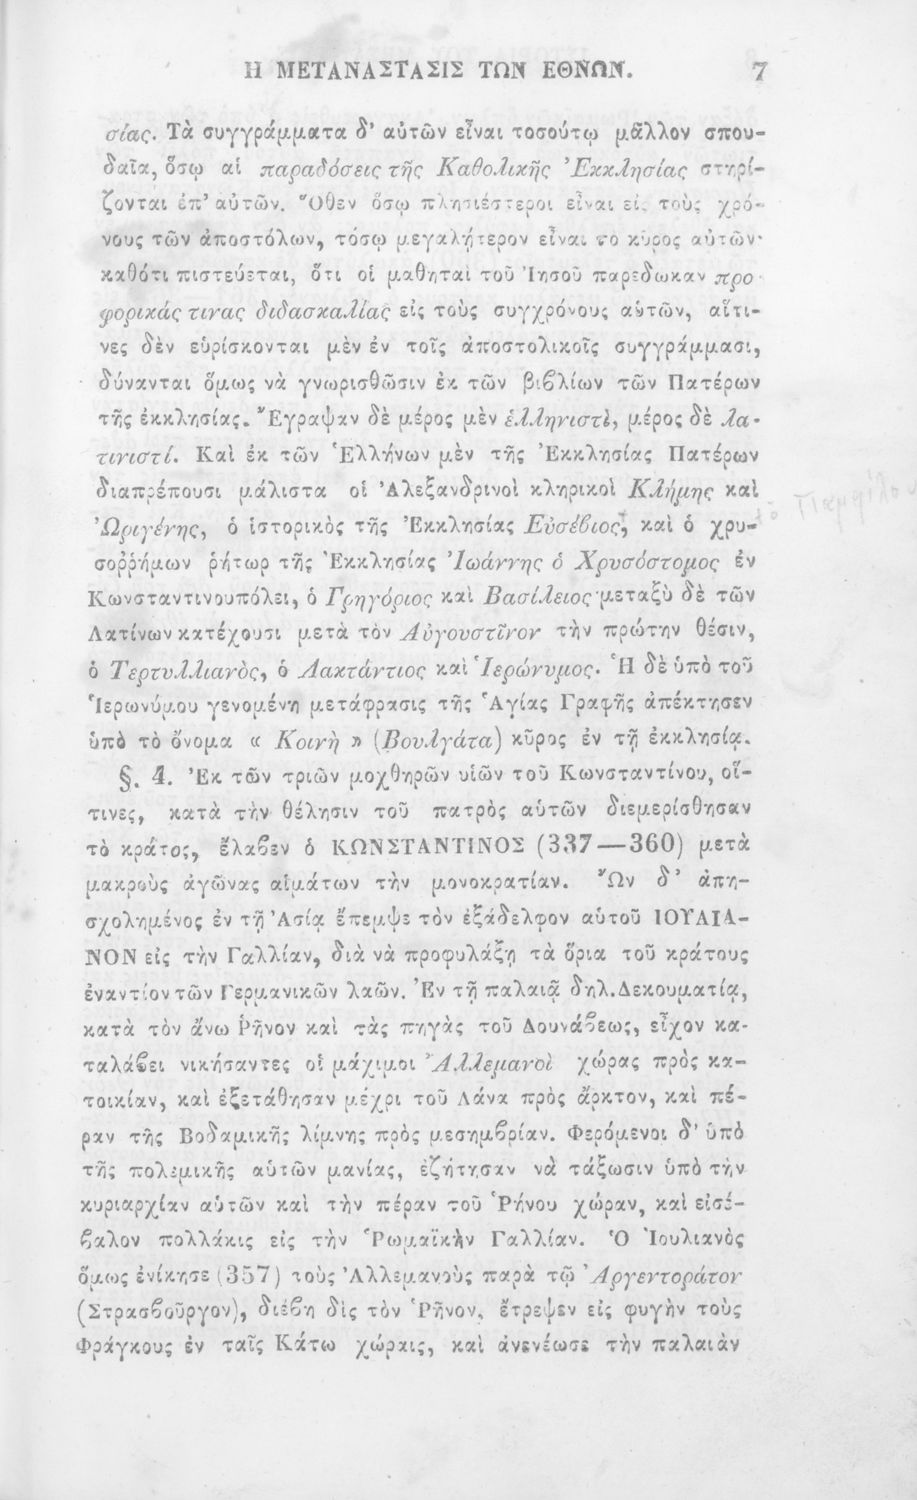 Η ΜΕΤΑΝΑΣΤΑΣΙΣ ΤΩΝ ΕΘΝΩΝ. 7
σίας. Τὰ συγγράμματα δ' αὐτῶν εἶναι τοσούτῳ μᾶλλον σπου-
δαῖα, ὅσῳ αἱ παραδόσεις τῆς Καθολικῆς Ἐκκλησίας στηρί-
ζονται ἐπ' αὐτῶν. Ὅθεν ὅσῳ πλησιέστεροι εἶναι εἰς τοὺς χρό-
νους τῶν ἀποστόλων, τόσῳ μεγαλήτερον εἶναι το κῦρος αὐτῶν·
καθότι πιστεύεται, ὅτι οἱ μαθηταὶ τοῦ Ἰησοῦ παρέδωκαν προ-
φορικάς τινας διδασκαλίας εἰς τοὺς συγχρόνους αὑτῶν, αἵτι-
νες δὲν εὑρίσκονται μὲν ἐν τοῖς ἀποστολικοῖς συγγράμμασι,
δύνανται ὅμως νὰ γνωρισθῶσιν ἐκ τῶν βιβλίων τῶν Πατέρων
τῆς ἐκκλησίας. Ἔγραψαν δὲ μέρος μὲν ἑλληνιστὶ, μέρος δὲ λα-
τινιστί. Καὶ ἐκ τῶν Ἑλλήνων μὲν τῆς Ἐκκλησίας Πατέρων
διαπρέπουσι μάλιστα οἱ Ἀλεξανδρινοὶ κληρικοὶ Κλήμης καὶ
Ὠριγένης, ὁ ἱστορικὸς τῆς Ἐκκλησίας Εὐσέβιος, καὶ ὁ χρυ-
ὁ Παμφίλου
σοῤῥήμων ῥήτωρ τῆς Ἐκκλησίας Ἰωάννης ὁ Χρυσόστομος ἐν
Κωνσταντινουπόλει, ὁ Γρηγόριος καὶ Βασίλειος· μεταξὺ δὲ τῶν
Λατίνων κατέχουσι μετὰ τὸν Αὐγουστῖνον τὴν πρώτην θέσιν,
ὁ Τερτυλλιανὸς, ὁ Λακτάντιος καὶ Ἱερώνυμος. Ἡ δὲ ὑπὸ τοῦ
Ἱερωνύμου γενομένη μετάφρασις τῆς Ἁγίας Γραφῆς ἀπέκτησεν
ὑπὸ τὸ ὄνομα « Κοινὴ » (Βουλγάτα) κῦρος ἐν τῇ ἐκκλησίᾳ.
§. 4. Ἐκ τῶν τριῶν μοχθηρῶν υἱῶν τοῦ Κωνσταντίνου, οἵ-
τινες, κατὰ τὴν θέλησιν τοῦ πατρὸς αὑτῶν διεμερίσθησαν
τὸ κράτος, ἔλαβεν ὁ ΚΩΝΣΤΑΝΤΙΝΟΣ (337—360) μετὰ
μακροὺς ἀγῶνας αἱμάτων τὴν μονοκρατίαν. Ὢν δ' ἀπη-
σχολημένος ἐν τῇ Ἀσίᾳ ἔπεμψε τὸν ἐξάδελφον αὑτοῦ ΙΟΥΛΙΑ-
ΝΟΝ εἰς τὴν Γαλλίαν, διὰ νὰ προφυλάξῃ τὰ ὅρια τοῦ κράτους
ἐναντίον τῶν Γερμανικῶν λαῶν. Ἐν τῇ παλαιᾷ δηλ. Δεκουματίᾳ,
κατὰ τὸν ἄνω Ῥῆνον καὶ τὰς πηγὰς τοῦ Δουνάβεως, εἶχον κα-
ταλάβει νικήσαντες οἱ μάχιμοι Ἀλλεμανοὶ χώρας πρὸς κα-
τοικίαν, καὶ ἐξετάθησαν μέχρι τοῦ Λάνα πρὸς ἄρκτον, καὶ πέ-
ραν τῆς Βοδαμικῆς λίμνης πρὸς μεσημβρίαν. Φερόμενοι δ' ὑπὸ
τῆς πολεμικῆς αὑτῶν μανίας, ἐζήτησαν νὰ τάξωσιν ὑπὸ τὴν
κυριαρχίαν αὑτῶν καὶ τὴν πέραν τοῦ Ῥήνου χώραν, καὶ εἰσέ-
βαλον πολλάκις εἰς τὴν Ῥωμαϊκὴν Γαλλίαν. Ὁ Ἰουλιανὸς
ὅμως ἐνίκησε (357) τοὺς Ἀλλεμανοὺς παρὰ τῷ Ἀργεντοράτον
(Στρασβοῦργον), διέβη δὶς τὸν Ῥῆνον, ἔτρεψεν εἰς φυγὴν τοὺς
Φράγκους ἐν ταῖς Κάτω χώραις, καὶ ἀνενέωσε τὴν παλαιὰν